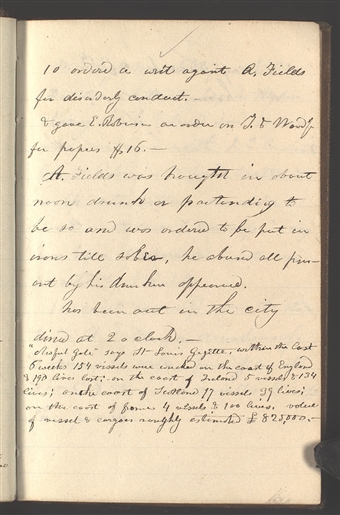 10 ordered a writ against A. Fields
for disorderly conduct.—
& gave E. Robinson an order on J. D Woodf
for papers $16.—
A. Fields was brought in about
noon drunk or pretending to
be so and was ordered to be put in
irons till sober, he abused all pres-
ent by his drunken
has been out in the city
dined at 2 o clock.—
"Dreadful Gale" says St Louis Gazette, within the last
6 weeks 154 vessels were wrecked on the coast of England
& 190 lives lost; on the coast of Ireland 5 vessels & 134
lives; on the coast of Scotland 17 vessels 39 lives;
on the coast of france 4 vessels & 100 lives. value
of vessels & cargoes roughly estimated £825,000.—